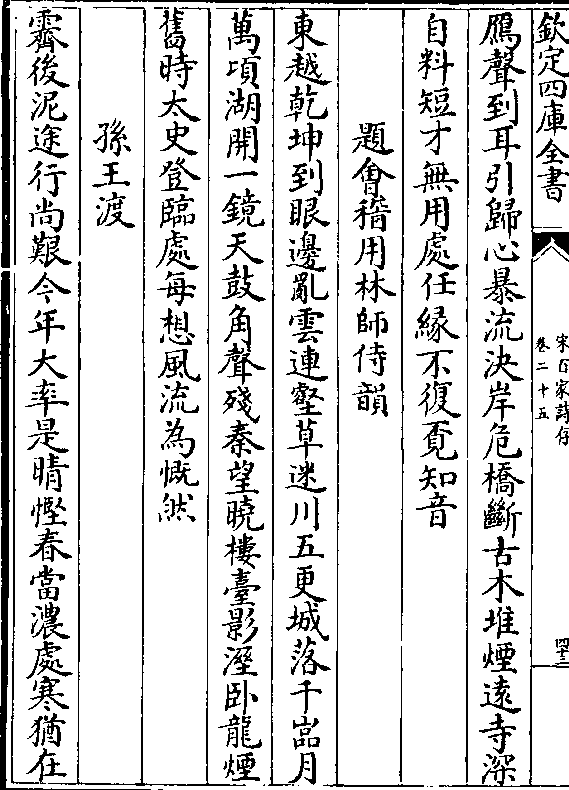 欽定四庫全書
宋百家詩存
卷二十五
四十三
鴈聲到耳引歸心暴流決岸危橋斷古木堆煙遠寺深
自料短才無用處任縁不復覔知音
題會稽用林師侍韻
東越乾坤到眼邊亂雲連壑草迷川五更城落千嵓月
萬頃湖開一鏡天鼓角聲殘秦望曉樓臺影溼卧龍煙
舊時太史登臨處每想風流為慨然
孫王渡
霽後泥途行尚艱今年大率是晴慳春當濃處寒猶在